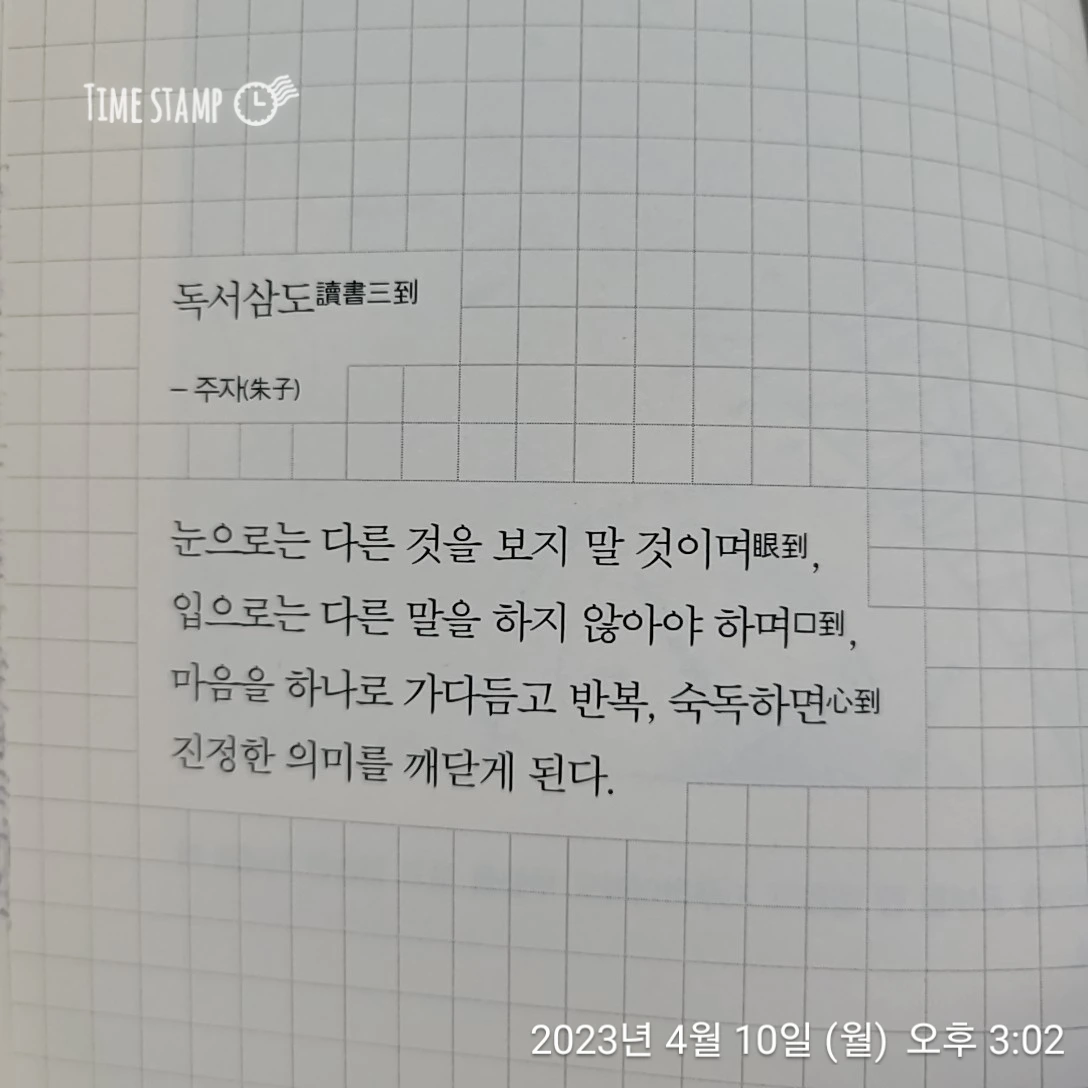 TIME STAMP
독서삼도讀書三到
– 주자(朱子)
눈으로는 다른 것을 보지 말 것이며眼到,
입으로는 다른 말을 하지 않아야 하며口到,
마음을 하나로 가다듬고 반복, 숙독하면心到
진정한 의미를 깨닫게 된다.
2023년 4월 10일 (월) 오후 3:02